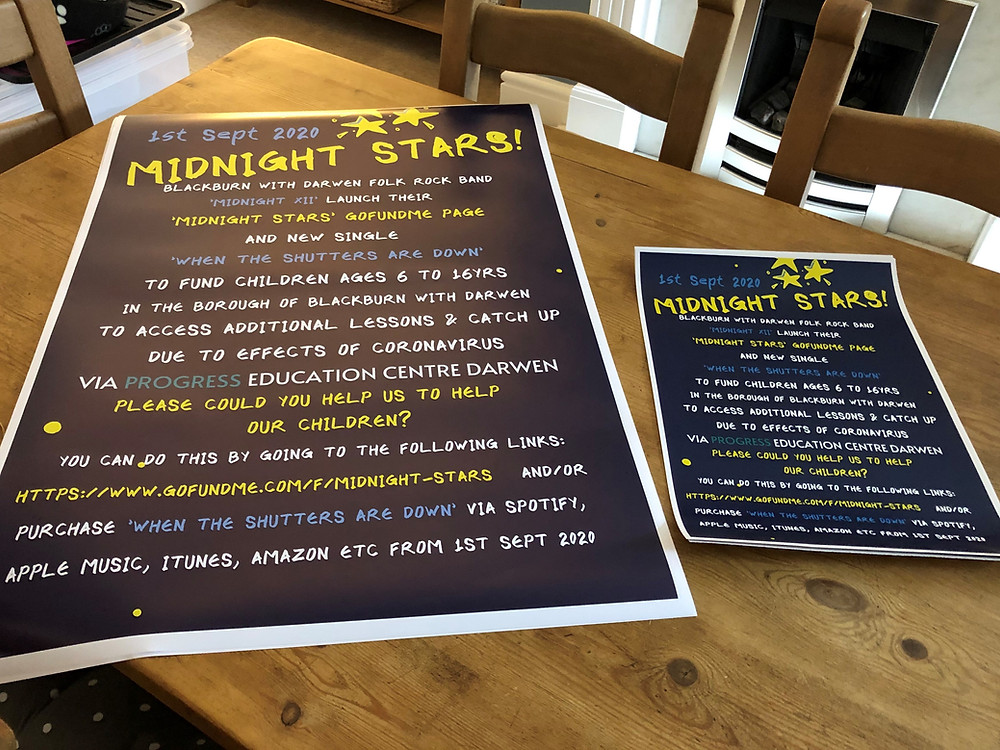 1st Sept 2020
MIDNIGHT STARS!
BLACKBURN WITH DARWEN FOLK ROCK BAND
'MIDNIGHT XII' LAUNCH THEIR
'MIDNIGHT STARS' GOFUNDME PAGE
AND NEW SINGLE
'WHEN THE SHUTTERS ARE DOWN'
TO FUND CHILDREN AGES 6 TO 16YRS
IN THE BOROUGH OF BLACKBURN WITH DARWEN
TO ACCESS ADDITIONAL LESSONS & CATCH UP
DUE TO EFFECTS OF CORONAVIRUS
VIA PROGRESS EDUCATION CENTRE DARWEN
PLEASE COULD YOU HELP US TO HELP
OUR CHILDREN?
YOU CAN DO THIS BY GOING TO THE FOLLOWING LINKS:
HTTPS://WWW.GOFUNDME.COM/F/MIDNIGHT-STARS AND/OR
PURCHASE 'WHEN THE SHUTTERS ARE DOWN' VIA SPOTIFY,
APPLE MUSIC, ITUNES, AMAZON ETC FROM 1ST SEPT 2020
1st Sept 2020
MIDNIGHT STARS!
BLACKBURN WITH DARWEN FOLK ROCK BAND
'MIDNIGHT XII' LAUNCH THEIR
'MIDNIGHT STARS' GOFUNDME PAGE
AND NEW SINGLE
'WHEN THE SHUTTERS ARE DOWN'
TO FUND CHILDREN AGES 6 TO 16YRS
IN THE BOROUGH OF BLACKBURN WITH DARWEN
TO ACCESS ADDITIONAL LESSONS & CATCH UP
DUE TO EFFECTS OF CORONAVIRUS
VIA PROGRESS EDUCATION CENTRE DARWEN
PLEASE COULD YOU HELP US TO HELP
OUR CHILDREN?
YOU CAN DO THIS BY GOING TO THE FOLLOWING LINKS:
HTTPS://WWW.GOFUNDME.COM/F/MIDNIGHT-STARS AND/OR
PURCHASE 'WHEN THE SHUTTERS ARE DOWN' VIA SPOTIFY,
APPLE MUSIC, ITUNES, AMAZON ETC FROM 1ST SEPT 2020